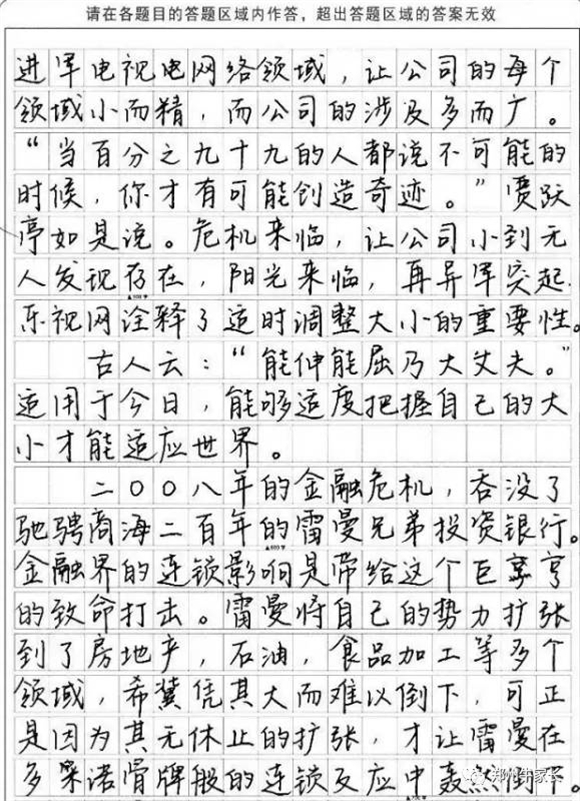 请在各题目的答题区域内作答，超出答题区域的答案无效
进军电视电网络领域，让公司的每个
领域小而精，而公司的涉及多而广。
“当百分之九十九的人都说不可能的
时候，你才有可能创造奇迹。”贾跃
亭如是说。危机来临，让公司小到无
人发现存在，阳光来临，再异军突起.
乐视网诠释了适时调整大小的重要性。
古人云：“能伸能屈乃大丈夫。”
适用于今日，能够适度把握自己的大
小才能适应世界。
二〇〇八年的金融危机，吞没了
驰骋商海二百年的雷曼兄弟投资银行。
金融界的连锁影响是带给这个巨亨
的致命打击。雷曼将自己的势力扩张
到了房地产，石油，食品加工等多个
领域，希冀凭其大而难以倒下，可正
是因为其无休止的扩张，才让雷曼在
多米诺骨牌般的连锁反应中轰然倒下。
郑州牛家长